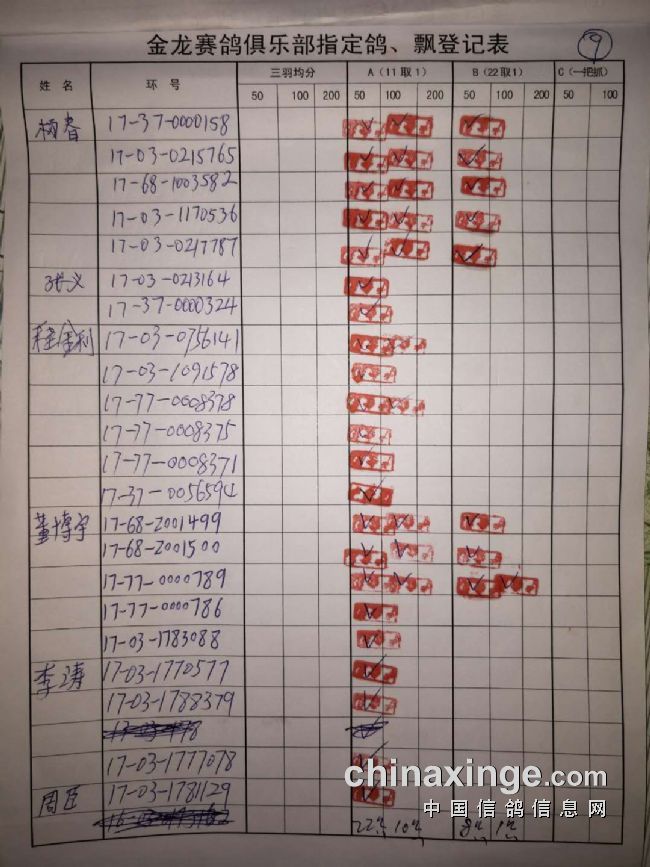 金龙赛鸽俱乐部指定鸽、飘登记表
9
姓 名 环 号 三羽均分 A（11取1） B（22取1） C（一把抓）
50 100 200 50 100 200 50 100 200 50 100
杨春 17-37-0000158
17-03-0215765
17-68-1003582
17-03-1170536
17-03-0217787
张义 17-03-0213164
17-37-0000324
程金利 17-03-0756141
17-03-1091578
17-77-0008378
17-77-0008375
17-77-0008371
17-37-0056594
董博宇 17-68-2001499
17-68-2001500
17-77-0000789
17-77-0000786
17-03-1783088
李涛 17-03-1770577
17-03-1788379
17-03-1777078
周臣 17-03-1781129
chinaxinge.com
中国信鸽信息网